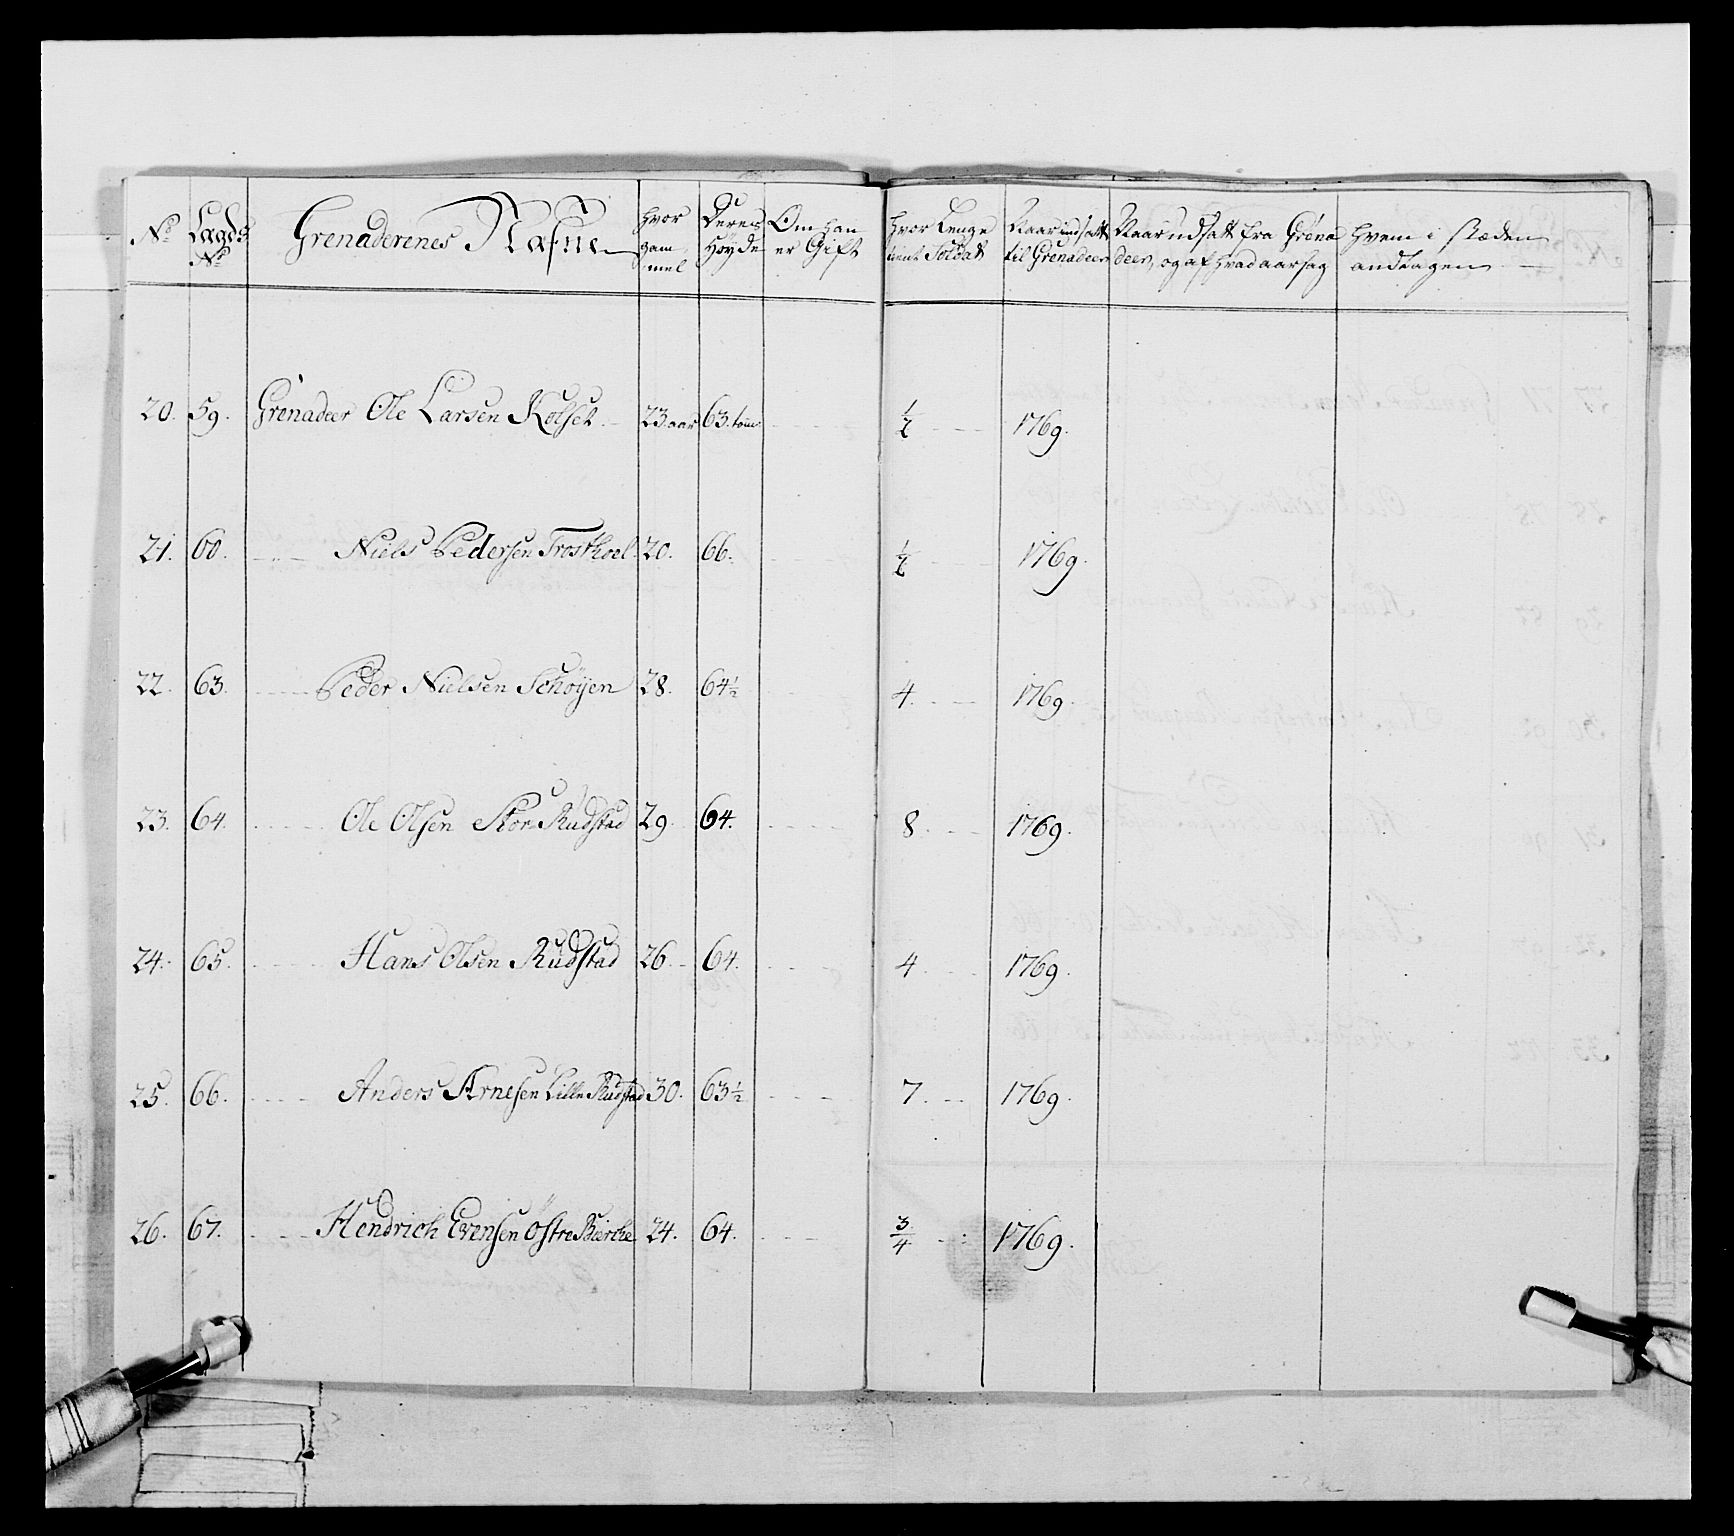 No Lægds No Grenaderenes Nafne hvor gam mel Deres Høyde Om han er Gift hvor Lenge tient Soldat Naar indsatt til Grenadeer Naar udsatt fra Grena deer, og af hvad aarsag hvem i stæden andtagen
20. 59. Grenadeer Ole Larsen Kolset 23 aar 63. tom ½ 1769.
21. 60. Niels Pedersen Trosthoel 20. 66. ½ 1769.
22. 63. Peder Nielsen Schøyen 28. 64½ 4. 1769.
23. 64. Ole Olsen Stor Rudstad 29. 64. 8. 1769.
24. 65. Hans Olsen Rudstad 26. 64. 4. 1769.
25. 66. Anders Arnesen Lille Rudstad 30. 63½ 7. 1769.
26. 67. Hendrich Evensen Østre Bierche 24. 64. ¾ 1769.